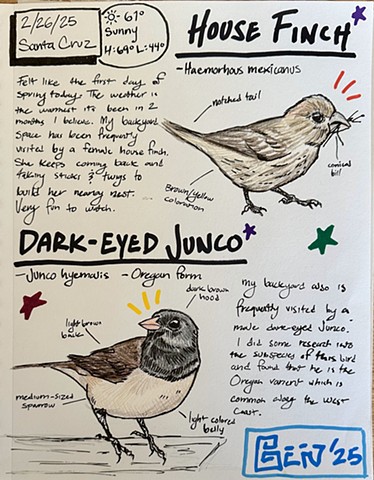 2/26/25
Santa Cruz
- 61°
Sunny
H: 69° L: 44°
HOUSE FINCH
- Haemorhous mexicanus
Felt like the first day of
Spring today. The weather is
the warmest its been in 2
months I believe. My backyard
space has been frequently
visited by a female house finch.
She keeps coming back and
taking sticks & twigs to
build her nearby nest.
Very fun to watch.
notched tail
conical
bill
Brown/yellow
coloration
DARK-EYED JUNCO
- Junco hyemalis - Oregon form
dark brown
hood
light brown
back
medium-sized
sparrow
light colored
belly
my backyard also is
frequently visited by a
male dark-eyed Junco.
I did some research into
the subspecies of this bird
and found that he is the
Oregon varient which is
common along the West
Coast.
'25